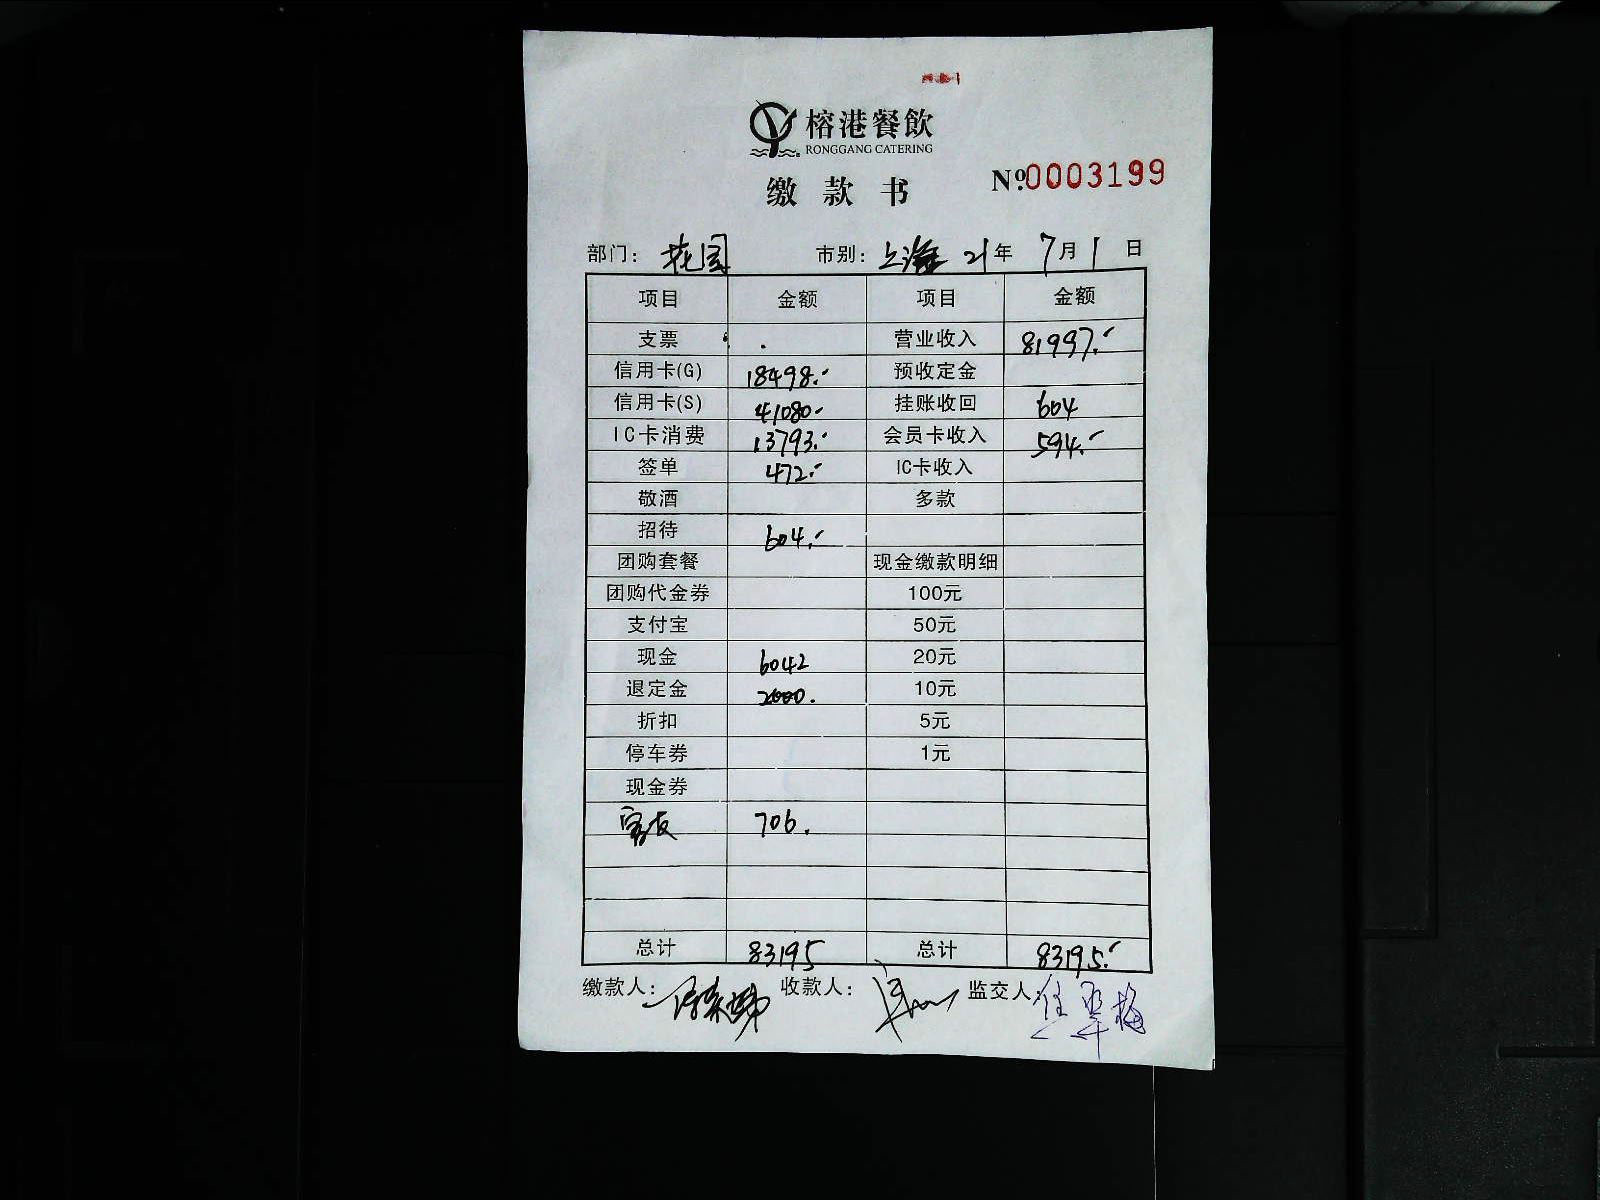 榕港餐飲
RONGGANG CATERING
缴款书
Nº 0003199
部门： 花园 市别： 上海 21年 7月1日
项目 金额 项目 金额
支票 营业收入 81997.-
信用卡(G) 18498.- 预收定金
信用卡(S) 41080- 挂账收回 604
IC卡消费 13793.- 会员卡收入 594.-
签单 472.- IC卡收入
敬酒 多款
招待 604.-
团购套餐 现金缴款明细
团购代金券 100元
支付宝 50元
现金 6042 20元
退定金 2000. 10元
折扣 5元
停车券 1元
现金券
706.
总计 83195 总计 83195.-
缴款人： 收款人： 监交人： 任翠梅